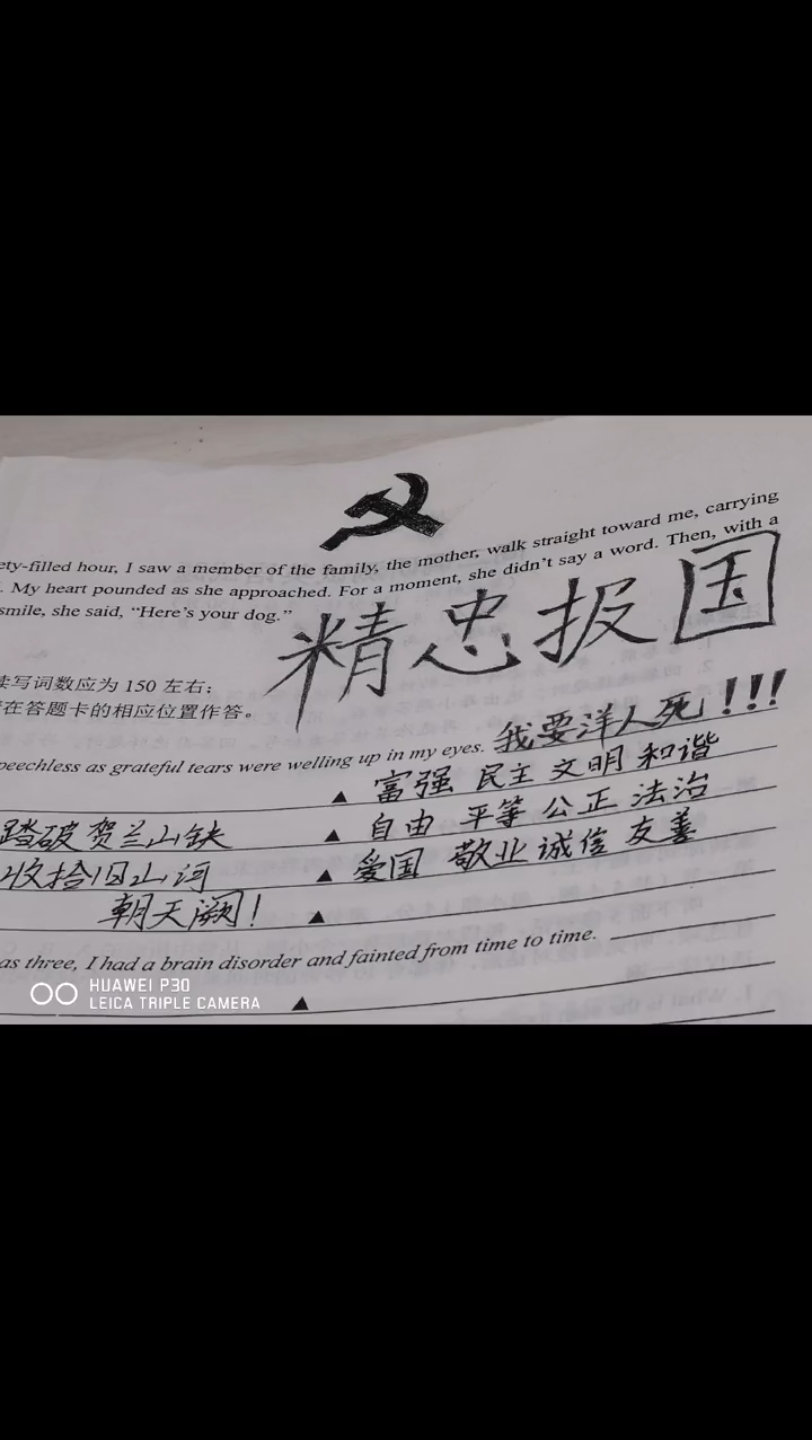 ety-filled hour, I saw a member of the family, the mother, walk straight toward me, carrying
. My heart pounded as she approached. For a moment, she didn't say a word. Then, with a
smile, she said, "Here's your dog."
精忠报国
读写词数应为 150 左右;
在答题卡的相应位置作答。
peechless as grateful tears were welling up in my eyes. 我要洋人死!!!
▲ 富强 民主 文明 和谐
踏破贺兰山缺 ▲ 自由 平等 公正 法治
收拾旧山河 ▲ 爱国 敬业 诚信 友善
朝天阙! ▲
as three, I had a brain disorder and fainted from time to time.
▲
HUAWEI P30
LEICA TRIPLE CAMERA